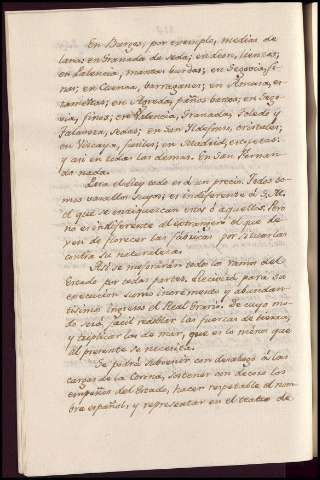 En Burgos, por exemplo, medias de
lana; en Granada de seda; en Leon, lienzos;
en Palencia, mantas burdas; en Segovia, fi-
nas; en Cuenca, barraganes; en Almeria, es-
tameñas; en Agreda, paños bastos; en Sego-
via, finos; en Valencia, Granada, Toledo y
Talavera, sedas; en San Ildefonso, cristales;
en Vizcaya, fusiles; en Madrid,
y asi en todas las demas. En San Fernan-
do nada.
Para el Rey todo es á un precio. Todos so-
mos vasallos suyos; es indiferente á S. M.
el que se enriquezcan estos ó aquellos. Pero
no es indiferente al extrangero el que de-
xen de florecer las fábricas por situarlas
contra su naturaleza.
Asi se mejorarán todos los ramos del
Estado por todas partes. Recivirá para su
execucion sumo incremento y abundan-
tisimos ingresos el Real Erario. De cuyo mo-
do será facil redoblar las fuerzas de tierra,
y triplicar las de mar, que es lo menos que
al presente se necesita.
Se podrá subvenir con desahogo á las
cargas de la Corona, sostener con decoro los
empeños del Estado, hacer respetable el nom-
bre español, y representar en el teatro de